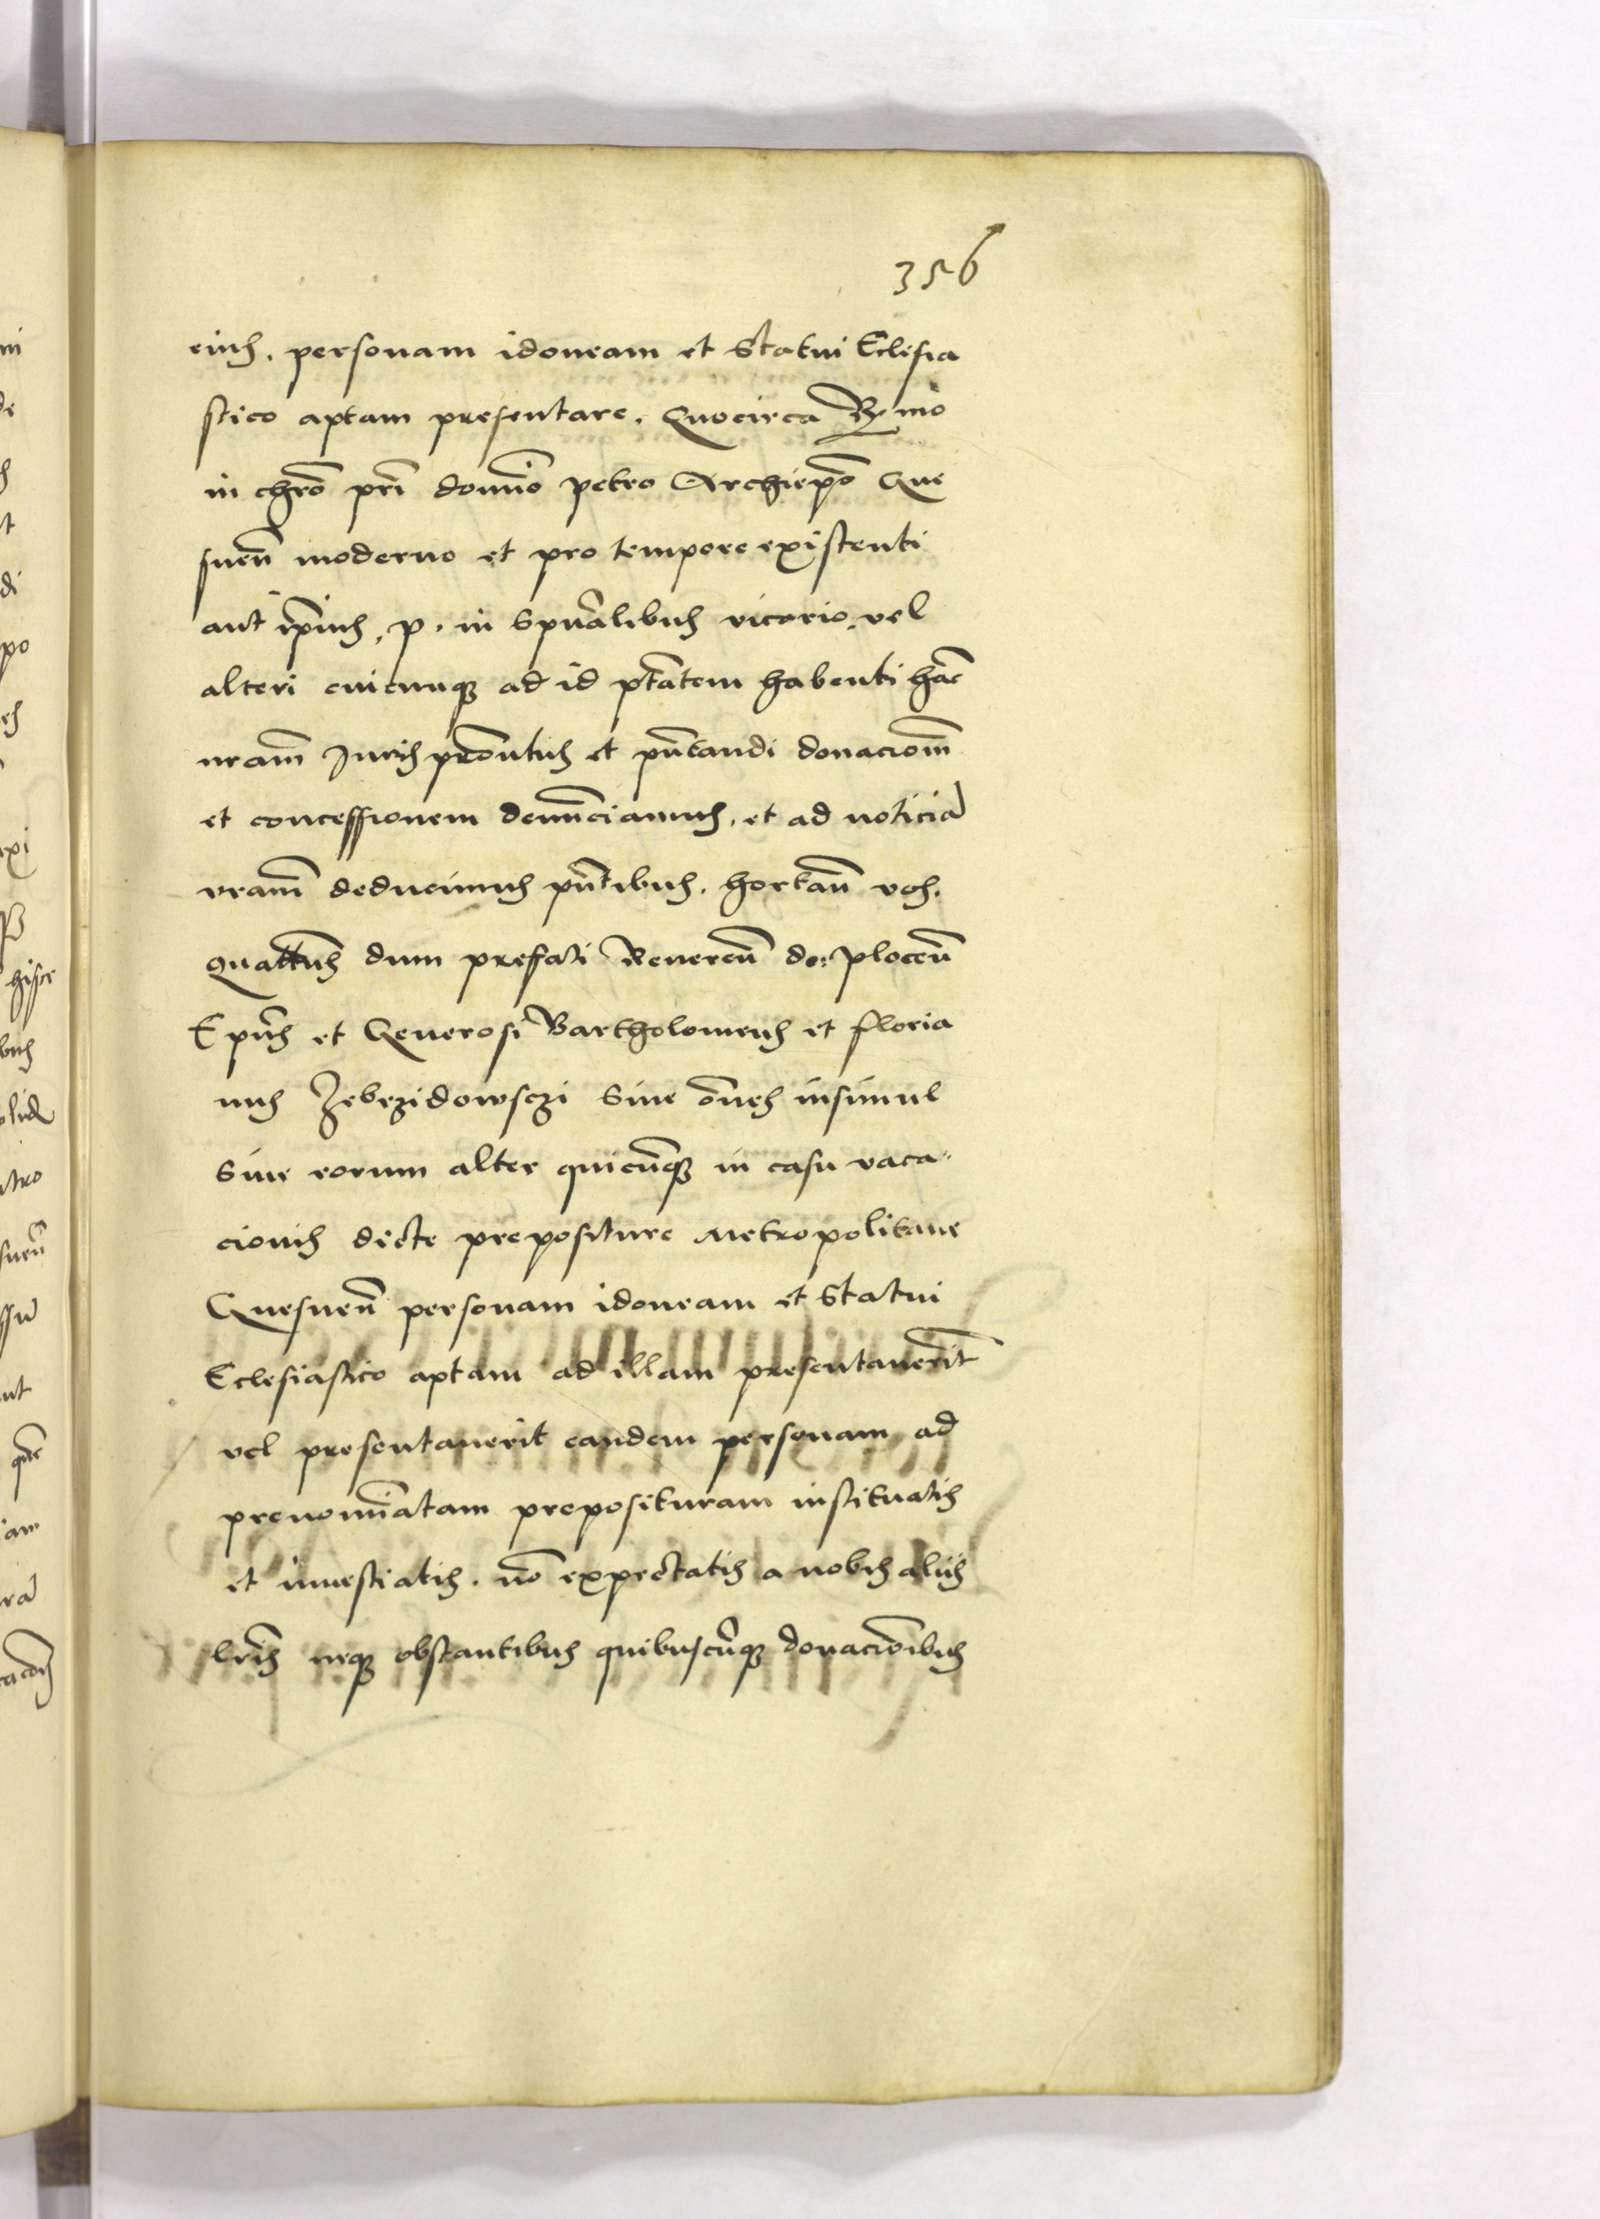 356
eius. personam idoneam et Statui Eclesia
stico aptam presentare. Quocirca Rmo
in chro pri domino petro Archiepo Gne
snen moderno et pro tempore existenti
aut ipius, p. in Spualibus vicario, vel
alteri cuicunque ad id ptatem habenti hac
nram Juris pronatus et pntandi donaciom
et concessionem denunciamus, et ad noticia
vram deducimus pntibus. hortan vos.
quattus dum prefati Reveren do: plocen
Epus et Generosi Bartholomeus et floria
nus Zebrzidowsczi Sive omes insimul
Sive eorum alter quicunque in casu vaca
cionis dicte prepositure Metropolitane
Gnesnen personam idoneam et Statui
Eclesiastico aptam ad illam presentaverint
vel presentaverit eandem personam ad
prenominatam preposituram instituatis
et investiatis. no expectatis a nobis aliis
lris neque obstantibus quibuscunque donacionibus